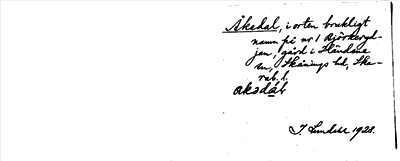 Åkedal, i orten brukligt
namn på nr 1 Björkeryd-
jan, gård i Händene
sn, Skånings hd, Ska-
rab. l.
aksdáł
J. Lundahl 1928.